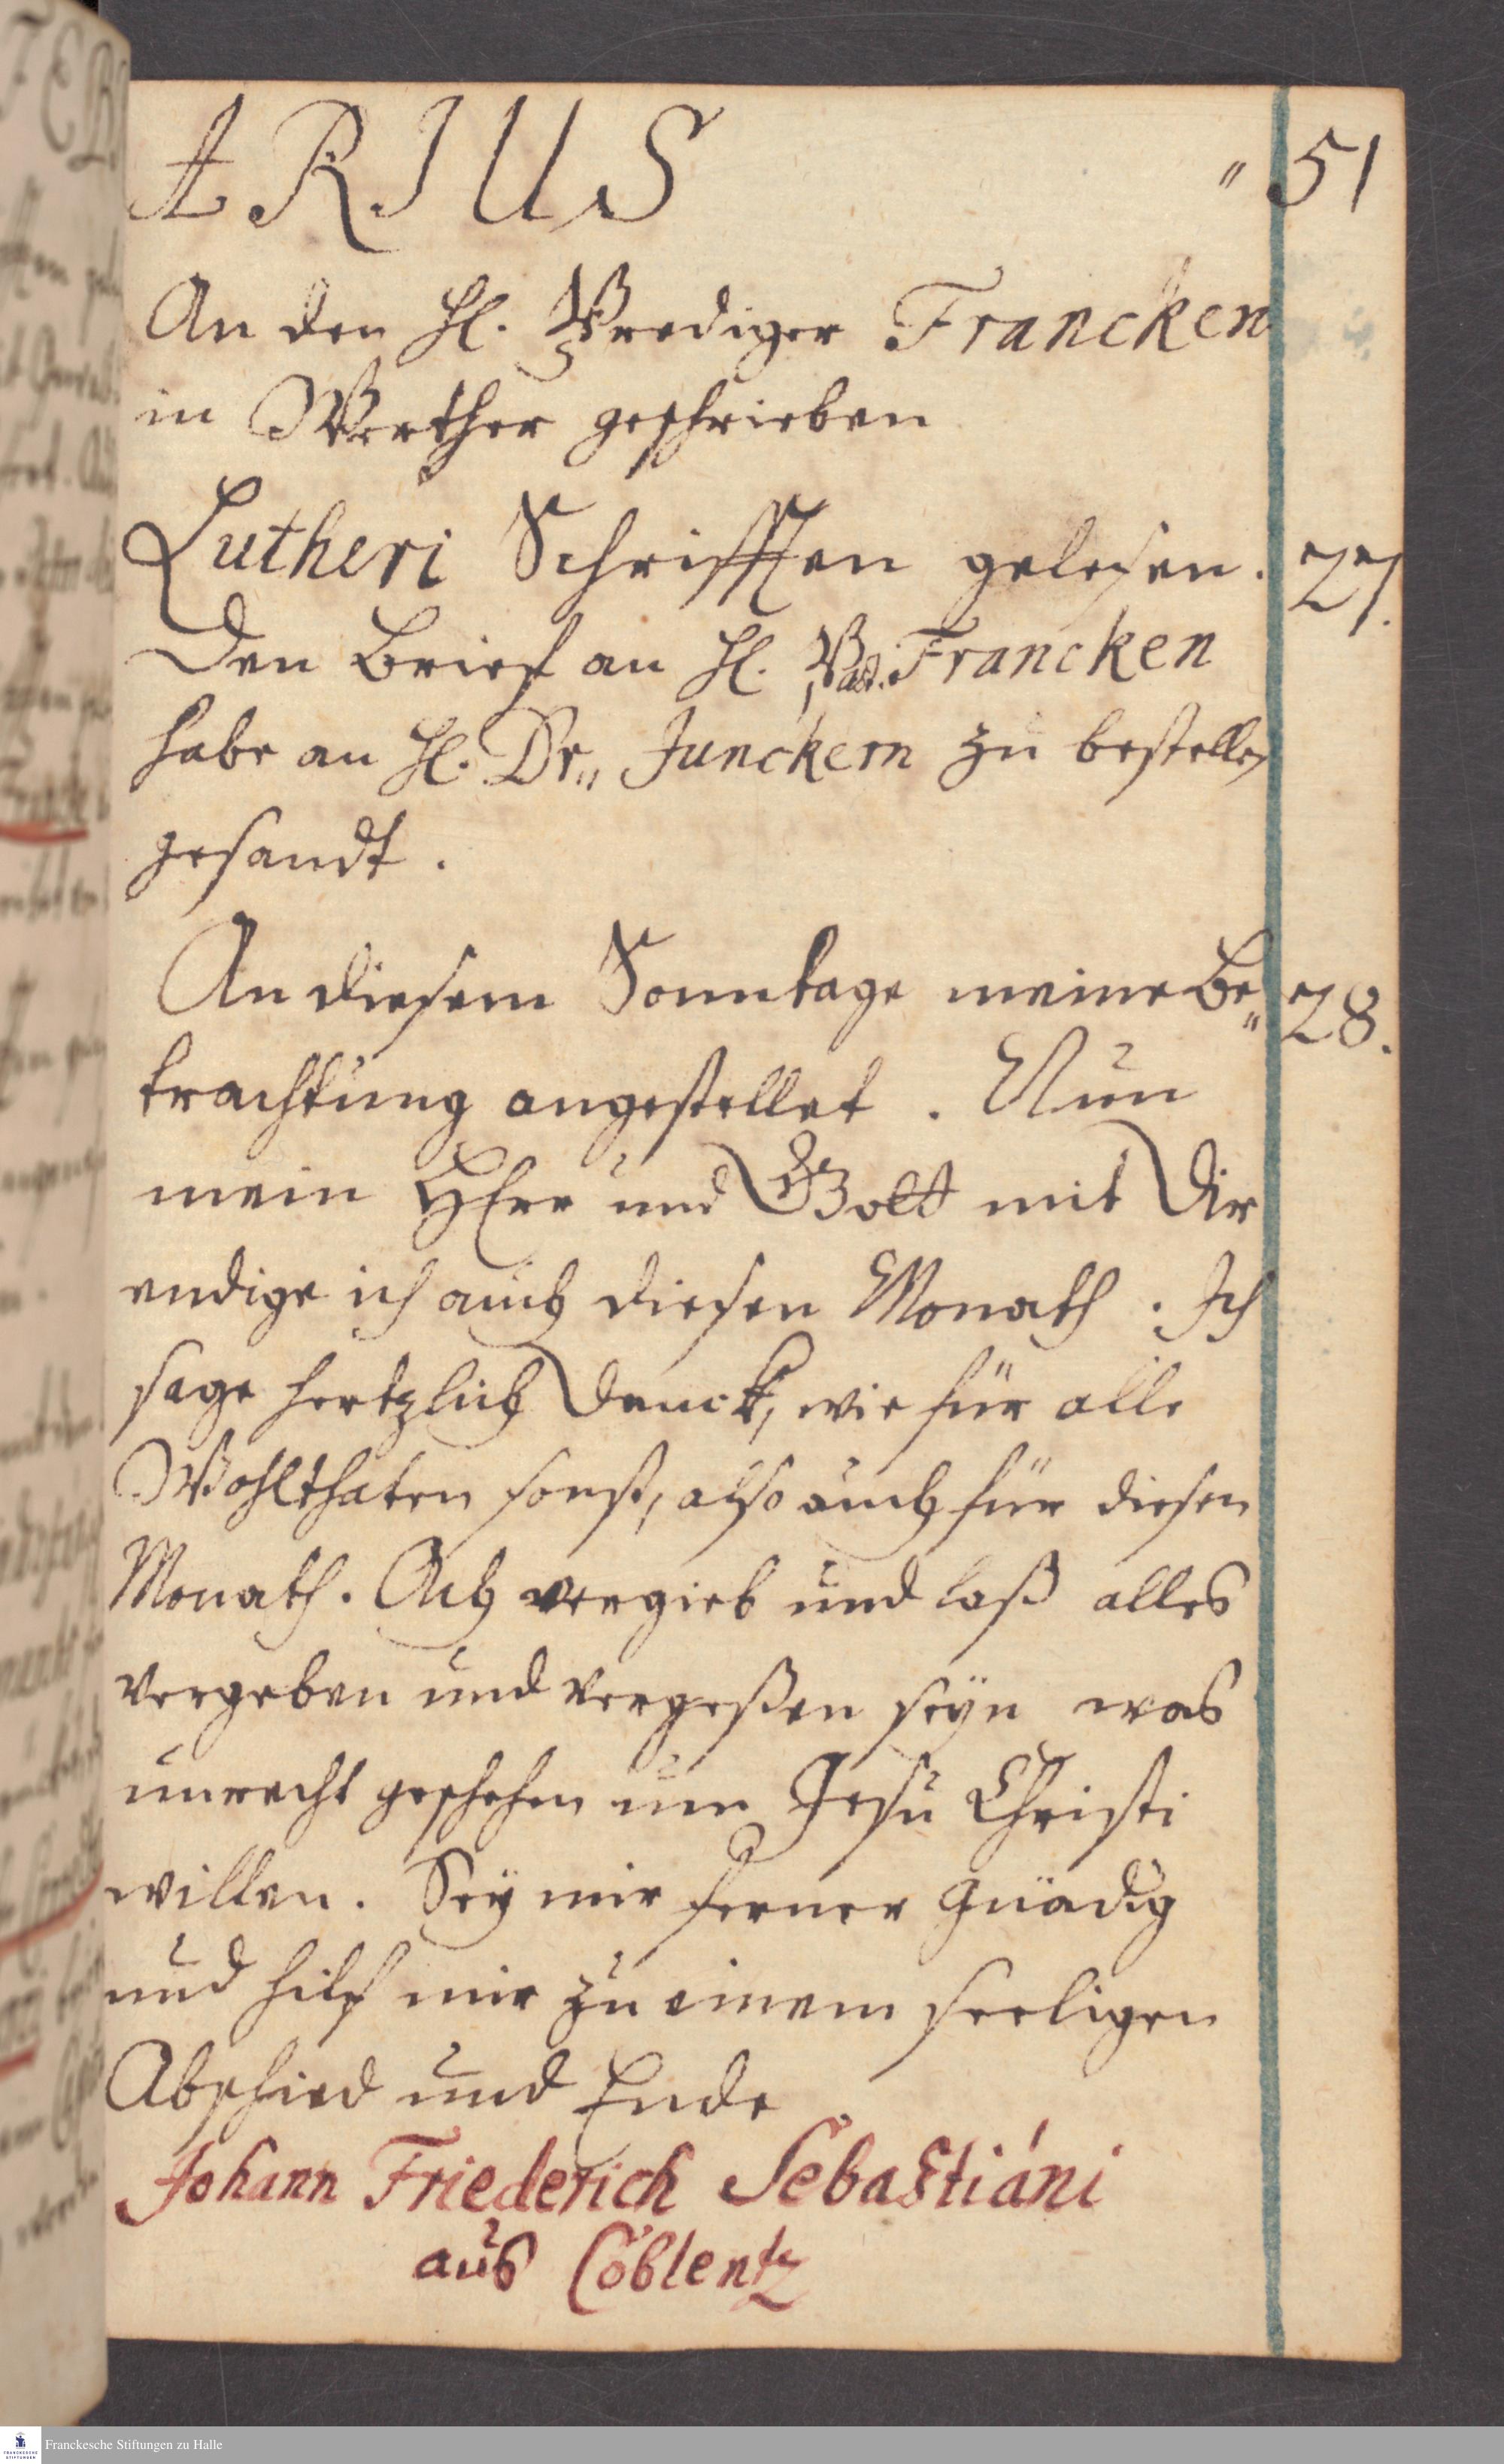 ARIUS „ 51
An den H. Prediger Francken
in Werther geschrieben
Lutheri Schrifften gelesen. 27.
Den Brief an H. Past. Francken
habe an H. Dr„ Junckern zu bestellen
gesandt.
An diesem Sonntage meine Be„ 28.
trachtung angestellet. Nun
mein HErr und Gott mit Dir
endige ich auch diesen Monath. Ich
sage hertzlich Danck, wie für alle
Wohlthaten sonst, also auch für diesen
Monath. Ach vergieb und laß alles
vergeben und vergeßen seyn was
unrecht geschehen um Jesu Christi
willen. Sey mir ferner Gnädig
und hilf mir zu einem seeligen
Abschied und Ende
Johann Friederich Sebastiáni
aus Coblentz
FRANCKESCHE STIFTUNGEN
Franckesche Stiftungen zu Halle